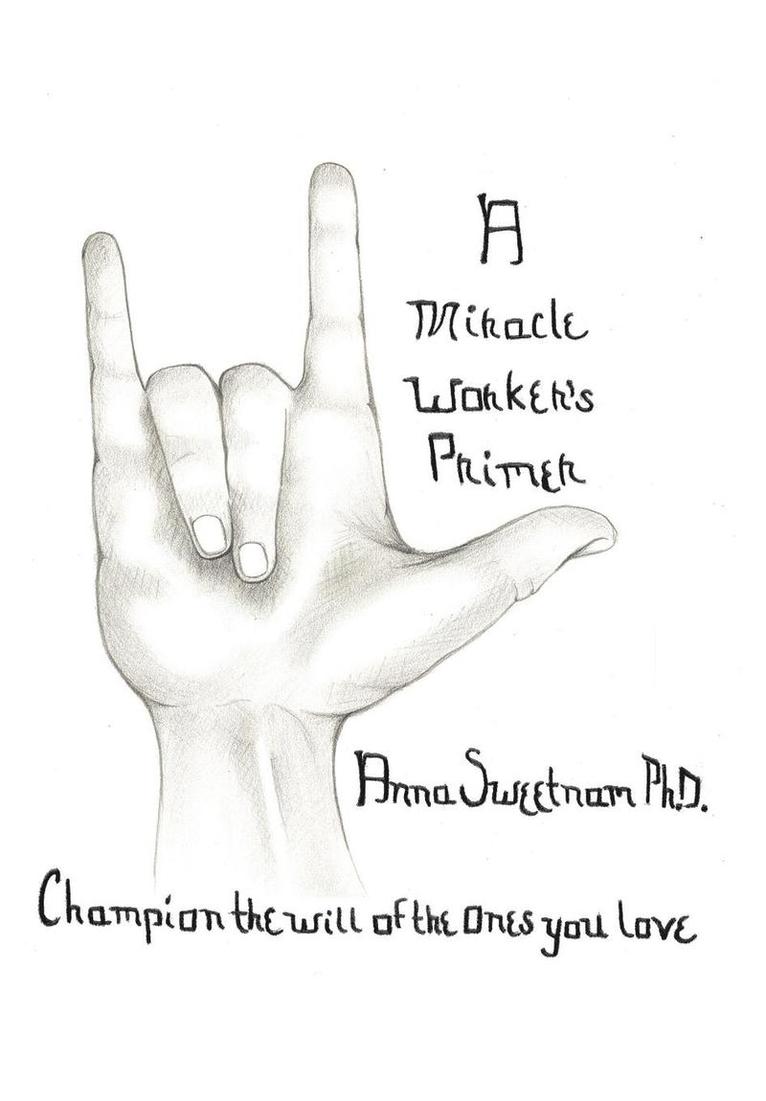 A
Miracle
Worker's
Primer
Anna Sweetnam Ph.D.
Champion the will of the ones you love